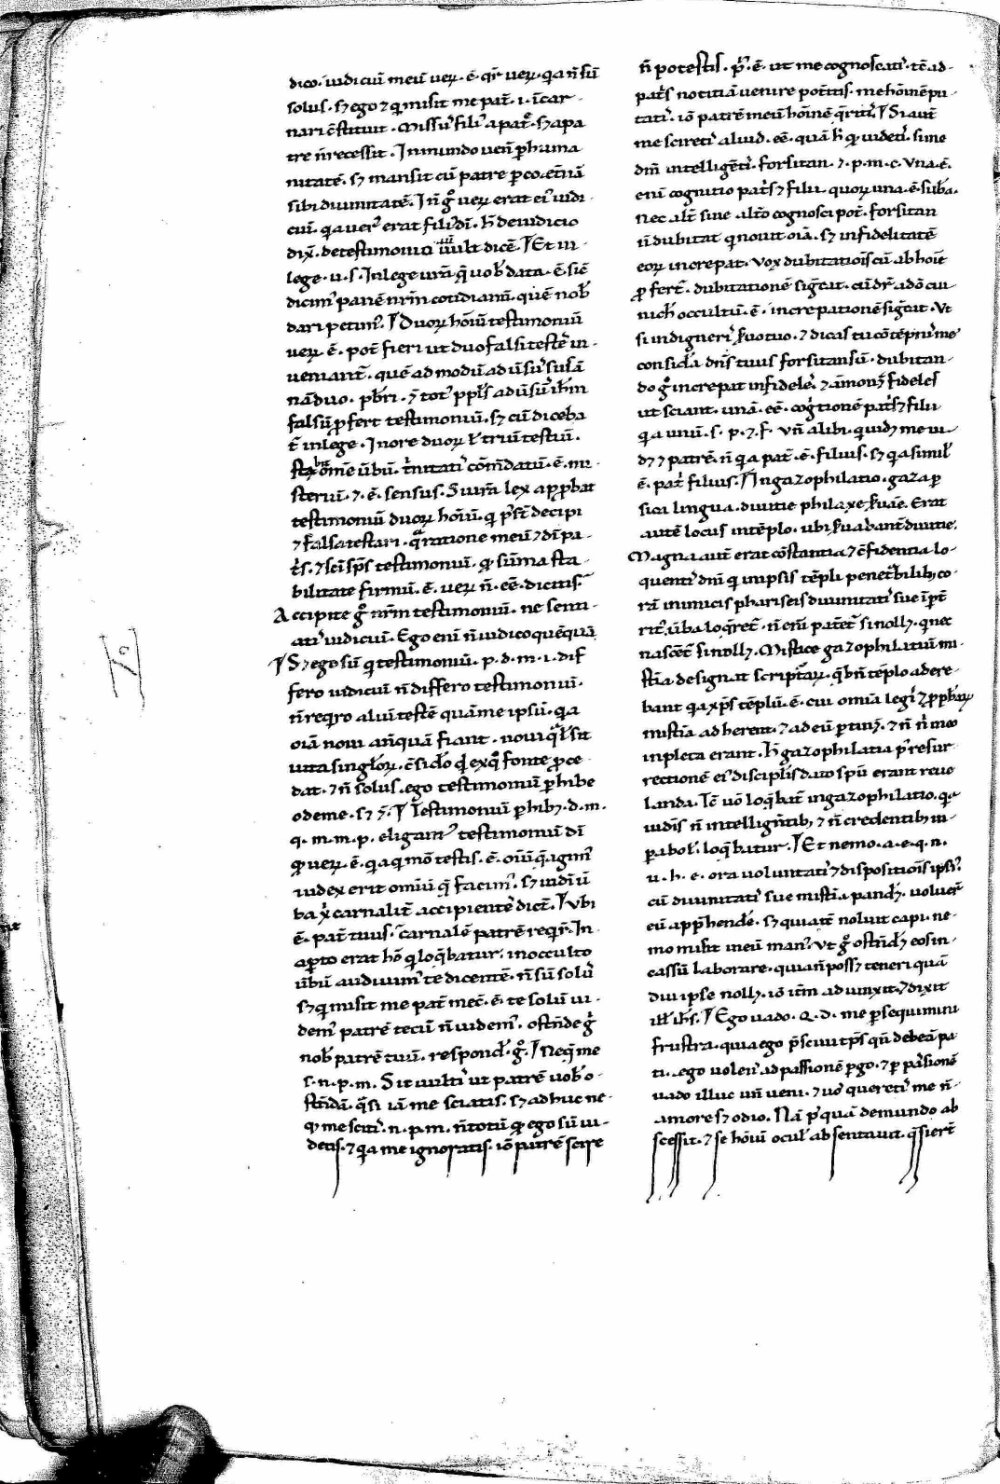 dico. iudiciũ meũ ueꝝ. ẽ. qꝛ̃ ueꝝ. q̃a ñ sũ
solus. sꝫ ego ⁊ q̇ misit me pat̃. i. ĩcar-
nari c̃stituit. Missuſ fili᾽ a pat̃. sꝫ a pa
tre ñ recessit. In mundo uen̾ ꝑ huma
nitatẽ. sꝫ mansit cũ patre ꝑ co.et̃nã
sibi diuinitatẽ. In g̊ ueꝝ erat ei᾽ iudi
ciũ. q̃a uer᾽ erat fili᾽ dĩ. h̃ de iudicio
dix̃. de testimonio ũ uult dic̃e. Et in
lege. u. s. In lege ur̃a q̃ uob̃ data. ẽ. sic̃
dicim᾽ panẽ nr̃m cotidianũ. quẽ nob̃
dari petim᾽. Duoꝝ hõiũ testimoniũ
ueꝝ ẽ. pot̃ fieri ut duo falsi testes in-
ueniant̃. quẽ ad modũ aduſũ susã
nã duo. pb̃ri. ⁊ tot᾽ ppl̃s aduſũ ih̃m
falsũ ꝓfert testimoniũ. sꝫ cũ diceba
t̃ in lege. In ore duoꝝ ł triũ testiũ.
stabit om̃e ũbũ. t̃nitati᾽ cõm̃datũ. ẽ. mi-
steriũ. ⁊. ẽ. sensus. Si ur̃a lex approbat
testimoniũ duoꝝ hõiũ. q̇ p̃st̃ decipi
⁊ falsa testari. q̃ ratione meũ ⁊ dĩ pa-
t̃s. ⁊ sc̃i sp̃s testimoniũ. qđ sũma sta
bilitate firmũ. ẽ. ueꝝ ñ. ee. dictis.
Accipite g̊ nr̃m testimoniũ. ne senti-
ati᾽ iudiciũ. Ego eni ñ iudico quẽquã
Sꝫ ego sũ q̇ testimoniũ. p. d. m. i. dif
fero iudiciũ ñ differo testimoniũ.
ñ req̇ro aliũ testẽ quã me ipsũ. q̃a
oĩa noui añquã fiant. noui q̃lis sit
uita singłoꝝ. ꝯsid̃o q̇d ex q̃ fonte ꝓce
dat. ⁊ ñ solus. ego testimoniũ ꝑhibe
o de me. sꝫ ⁊. Testimoniũ ꝑhibꝫ. d. m.
q. m. m. p. eligam᾽ testimoniũ dĩ
qđ ueꝝ. ẽ. q̃a q̇ mõ testis. ẽ. oĩũ q̃ agim᾽
iudex erit omiũ q̃ facim᾽. sꝫ iudi ũ
ba x̃ carnalit̃ accipientes dic̃t. Ubi
ẽ. pat̃ tuus. carnalẽ patrẽ req̇r̃. In
aꝑto erat hõ q̇ loq̃batur. in occulto
ũbũ. audiuim᾽ te dicentẽ. ñ sũ solus
sꝫ q̇ misit me pat̃ mec̃. ẽ. te solũ ui
dem᾽ patrẽ tecũ ñ uidem᾽. ostñde g̊
nob̃ patrẽ tuũ. respond̃. g̊. Neq̃ me
s. n. p. m. Sic uulti᾽ ut patrẽ uob̃ o-
stñdã. q̃si iã me sciatis. sꝫ adhuc ne-
qꝫ me sciti᾽. n. p. m. ñ totũ qđ ego sũ ui-
detis. ⁊ q̃a me ignoratis. iõ patrẽ scire
ñ potestis. pr̃. ẽ. ut me cognoscati᾽. t̃c ad
pat̃s notitiã uenire pot̃itis. me hõinẽ pu
tati᾽. iõ patrẽ meũ hõinẽ q̃riti᾽. Si aũt
me scireti᾽ aliud. ee. quã h̃ qđ uideti᾽. si me
dm̃ intelligẽti᾽. forsitan. ⁊. p. m. c. Una. ẽ.
eni cognitio pat̃s ⁊ filii. quoꝝ una. ẽ. sub̃a.
nec alt̃ sine alt̃o cognosci pot̃. forsitan
ñ dubitat q̇ nouit oĩa. sꝫ infidelitatẽ
eoꝝ increpat. Uox dubitatiõis cũ ab hoĩe
ꝓfert̃. dubitationẽ sig̃cat. cũ dr̃ a dõ cui
nich̃ occultũ. ẽ. increpationẽ sig̃cat. Ut
si indigneri᾽ ẜuo tuo. ⁊ dicas tu cõtẽpnis me
consid̃a dñs tuus forsitan sũ. dubitan-
do g̊ increpat infideles. ⁊ ãmonꝫ fideles
ut sciant. unã. ee. cogt̃ionẽ pat̃s ⁊ filii
q̃a unũ. s. p. ⁊. f. Uñ alibi. qui uidꝫ me ui
dꝫ ⁊ patrẽ. ñ q̃a pat̃. ẽ. filius. sꝫ q̃a simil̃
ẽ. pat̃ filius. In gazophilatio. gaza ꝑ
sica lingua. diuitie philaxe ẜuare. Erat
autẽ locus in tẽplo. ubi ẜuabant̃ diuitie.
Magna aũt erat cõstantia ⁊ c̃fidentia lo-
quenti᾽ dñi q̇ in ipsis tẽpli penet̃bilibꝫ co-
rã inimicis phariseis diuinitati᾽ sue ĩpt̃
rit᾽. ũba loq̃ret̃. ñ eni pat̃et̃ si nollꝫ. q̇ nec
nascẽt̃ si nollꝫ. Mistice gazophilatiũ mi-
st̃ia designat scripturaꝝ. q̃ b̃n tẽplo adere-
bant q̃a xp̃s tẽplũ. ẽ. cui omĩa legis ⁊ ꝓphetaꝝ
mist̃ia adherent. ⁊ ad eũ ꝑtinꝫ. ⁊ ñ ñ in eo
inpleta erant. h̃ gazophilatia p̃ resur
rectionẽ ei᾽ discipl̃is dato sp̃u erant reue
landa. T̃c ũo loq̃bat̃ in gazophilatio. q̃a
iudis ñ intelligentibꝫ. ⁊ ñ credentibꝫ in-
parabol̃. loq̃batur. Et nemo. a. e. q. n.
u. h. e. ora uoluntati᾽ ⁊ dispositiõis ipsi᾽.
cũ diuinitati᾽ sue mist̃ia pandꝫ. uoluer̃
eũ app̃hende. sꝫ quia t̃c noluit capi. ne-
mo misit in eũ man᾽. Ut g̊ ostñdꝫ eos in
cassũ laborare. quia ñ possꝫ teneri quã
diu ipse nollꝫ. iõ itm̃ adiunxit. ⁊ dixit
ill̃. ih̃s. Ego uado. Q. d. me ꝑsequimini
frustra. quia ego p̃sciui tp̃s qñ debeã pa
ti. ego uolens ad passionẽ ꝑgo. ⁊ ꝑ passionẽ
uado illuc uñ ueni. ⁊ uos quereti᾽ me ñ-
amore sꝫ odio. Nã p᾽quã de mundo ab
scessit. ⁊ se hõiũ ocul̃ absentauit. q̃sierũt